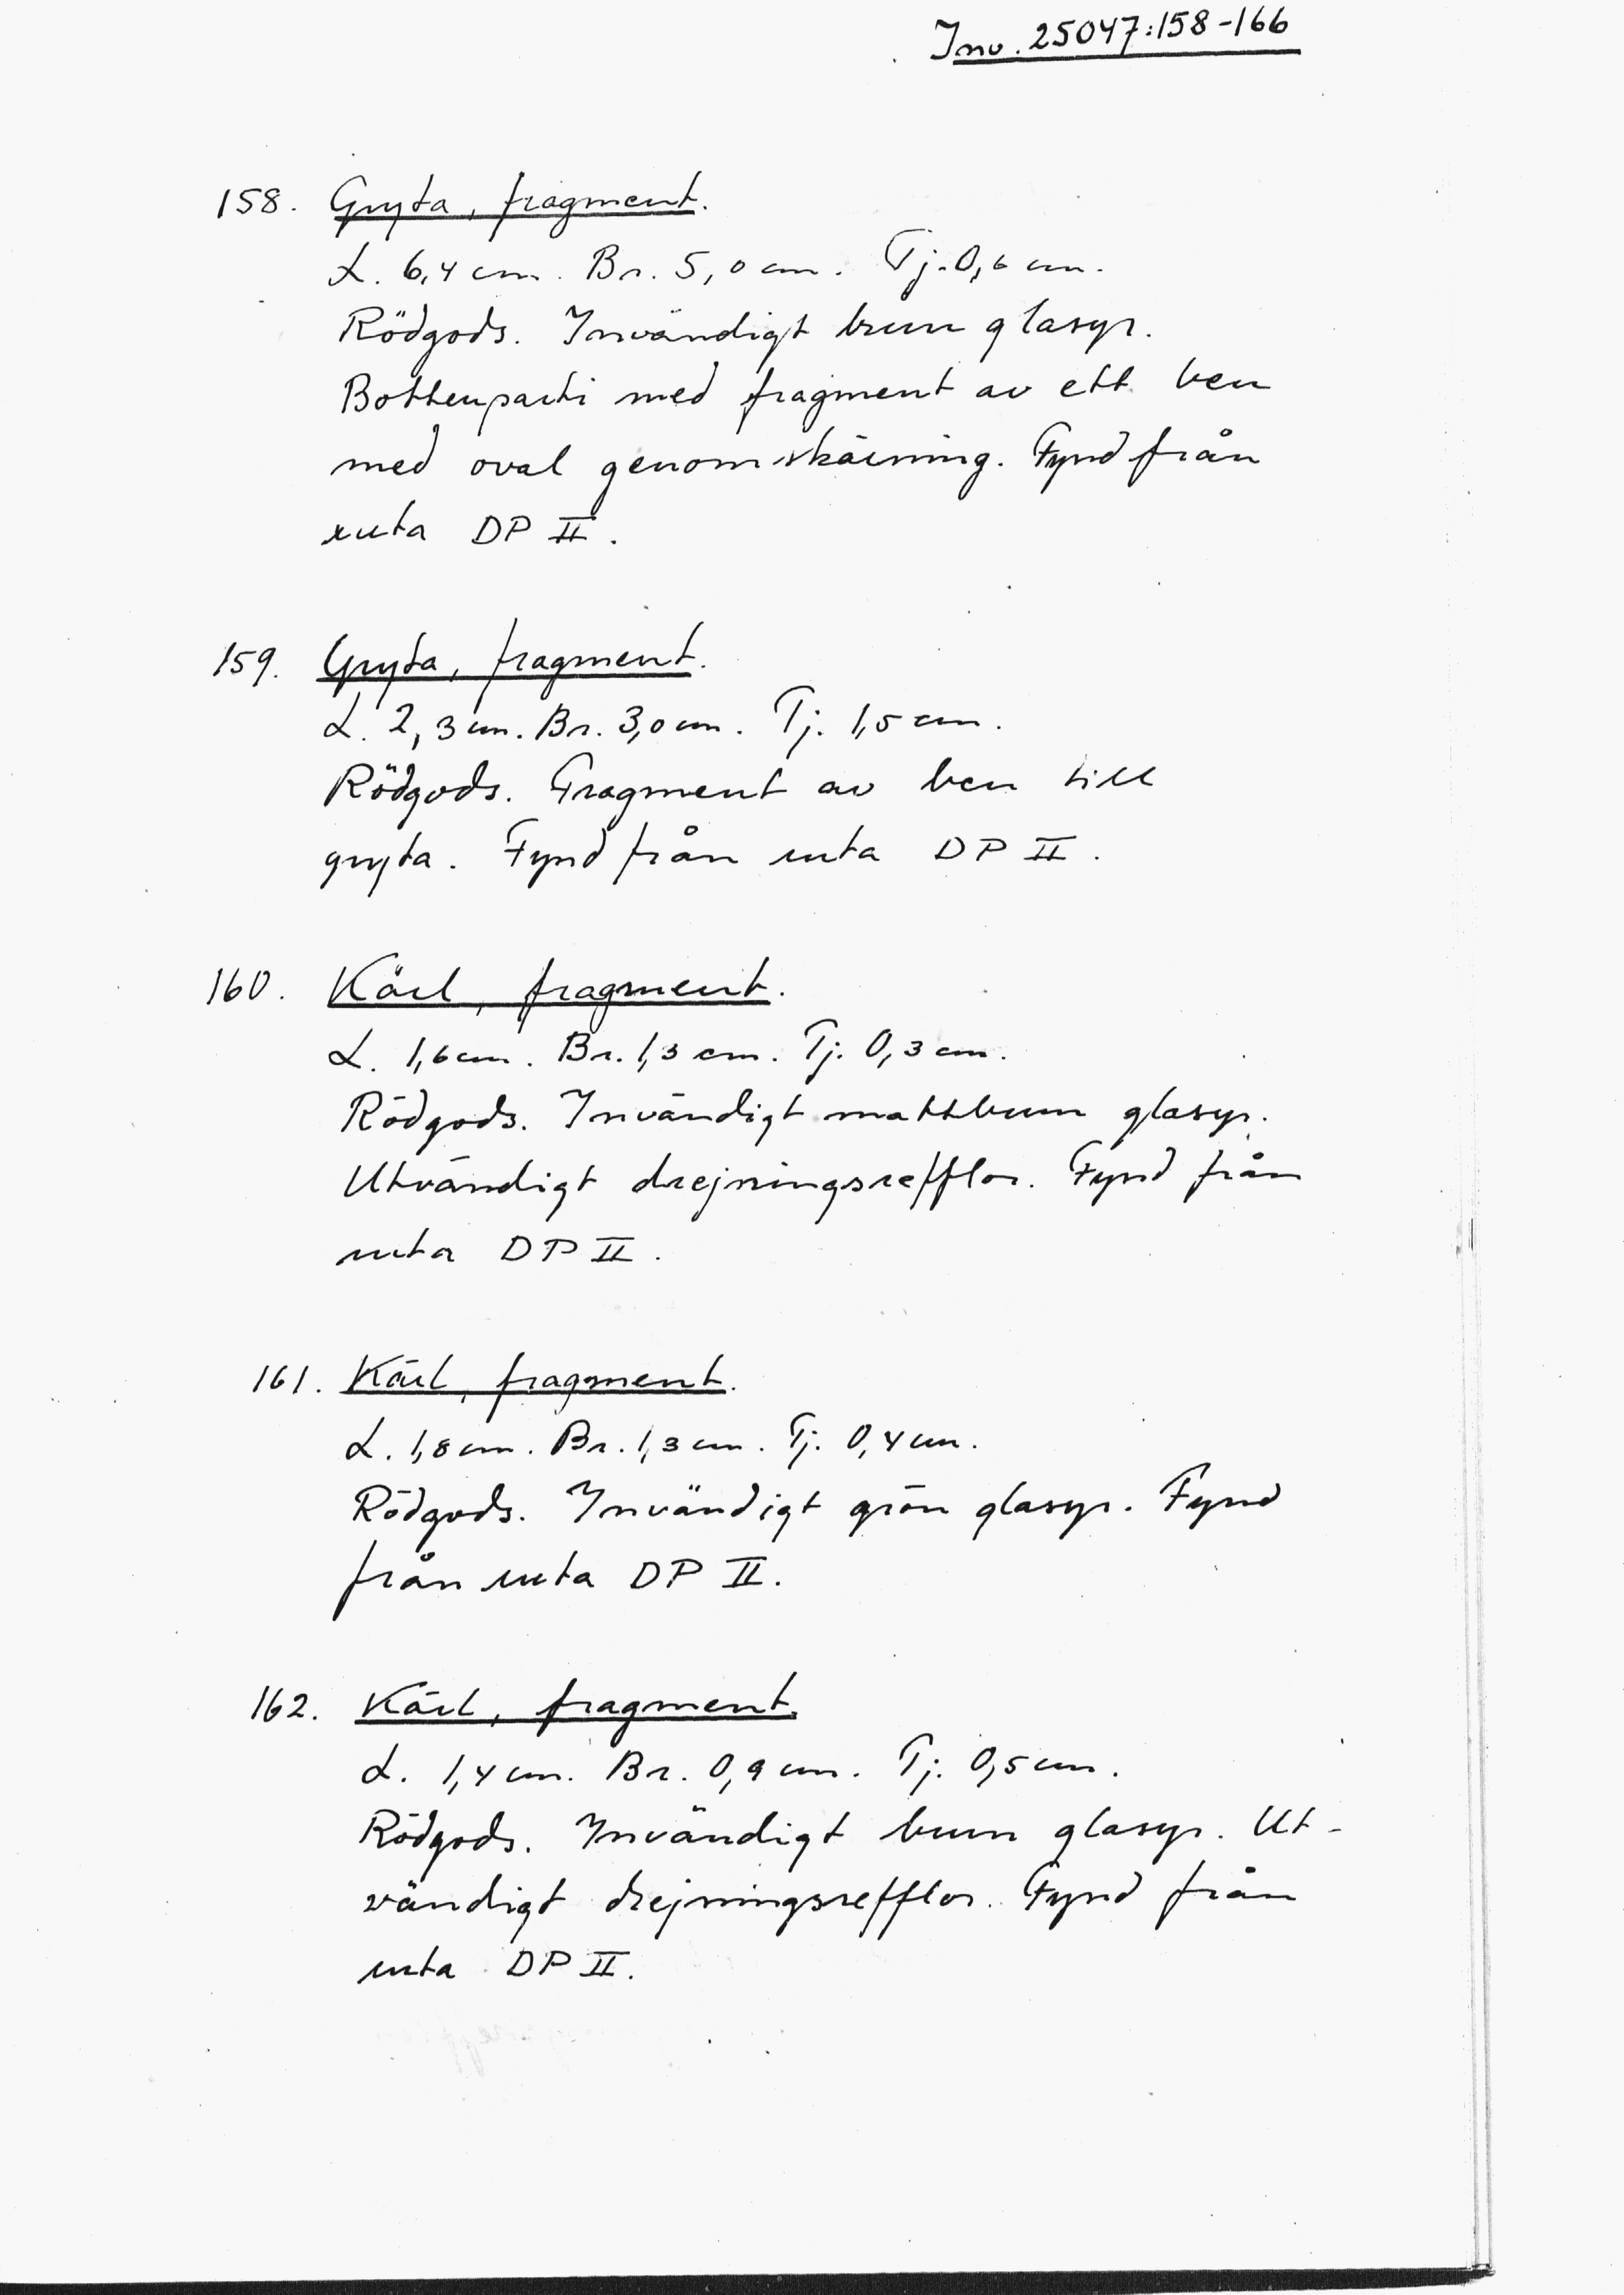 Inv. 25047:158-166
158. Gryta, fragment.
L. 6,4 cm. Br. 5,0 cm. Tj. 0,6 cm.
Rödgods. Invändigt brun glasyr.
Bottenparti med fragment av ett ben
med oval genomskärning. Fynd från
ruta DP II.
159. Gryta, fragment.
L. 2,3 cm. Br. 3,0 cm. Tj. 1,5 cm.
Rödgods. Fragment av ben till
gryta. Fynd från ruta DP II.
160. Kärl, fragment.
L. 1,6 cm. Br. 1,3 cm. Tj. 0,3 cm.
Rödgods. Invändigt mattbrun glasyr.
Utvändigt drejningsrefflor. Fynd från
ruta DP II.
161. Kärl, fragment.
L. 1,8 cm. Br. 1,3 cm. Tj. 0,4 cm.
Rödgods. Invändigt grön glasyr. Fynd
från ruta DP II.
162. Kärl, fragment.
L. 1,4 cm. Br. 0,9 cm. Tj. 0,5 cm.
Rödgods. Invändigt brun glasyr. Ut-
vändigt drejningsrefflor. Fynd från
ruta DP II.